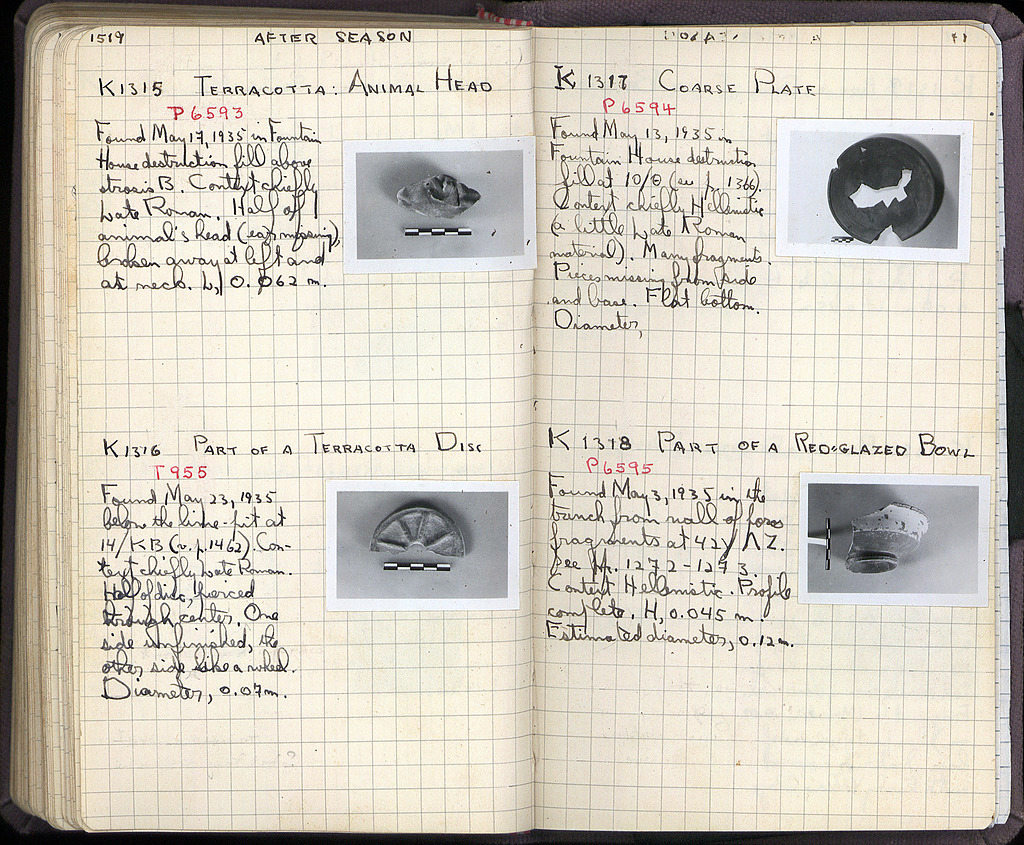 1519 AFTER SEASON
K1315 TERRACOTTA: ANIMAL HEAD
P6593
Found May 17, 1935 in Fountain
House destruction fill above
strosis B. Context chiefly
Late Roman. Half of
animal's head (ear missing),
broken away at left and
at neck. L, 0.062 m.
K1316 PART OF A TERRACOTTA DISC
T955
Found May 23, 1935
below the lime-pit at
14/KB (v. p. 1462). Con-
text chiefly Late Roman.
Half of disc, pierced
through center. One
side unfinished, the
other side like a wheel.
Diameter, 0.07 m.
K 1317 COARSE PLATE
P6594
Found May 13, 1935 in
Fountain House destruction
fill at 10/Θ (see p. 1366).
Context chiefly Hellenistic
(a little Late Roman
material). Many fragments.
Pieces missing from side
and base. Flat bottom.
Diameter,
K 1318 PART OF A RED-GLAZED BOWL
P6595
Found May 3, 1935 in the
trench from wall of
fragments at 42/ΛΖ.
See pp. 1272-1273.
Context Hellenistic. Profile
complete. H, 0.045 m.
Estimated diameter, 0.12 m.